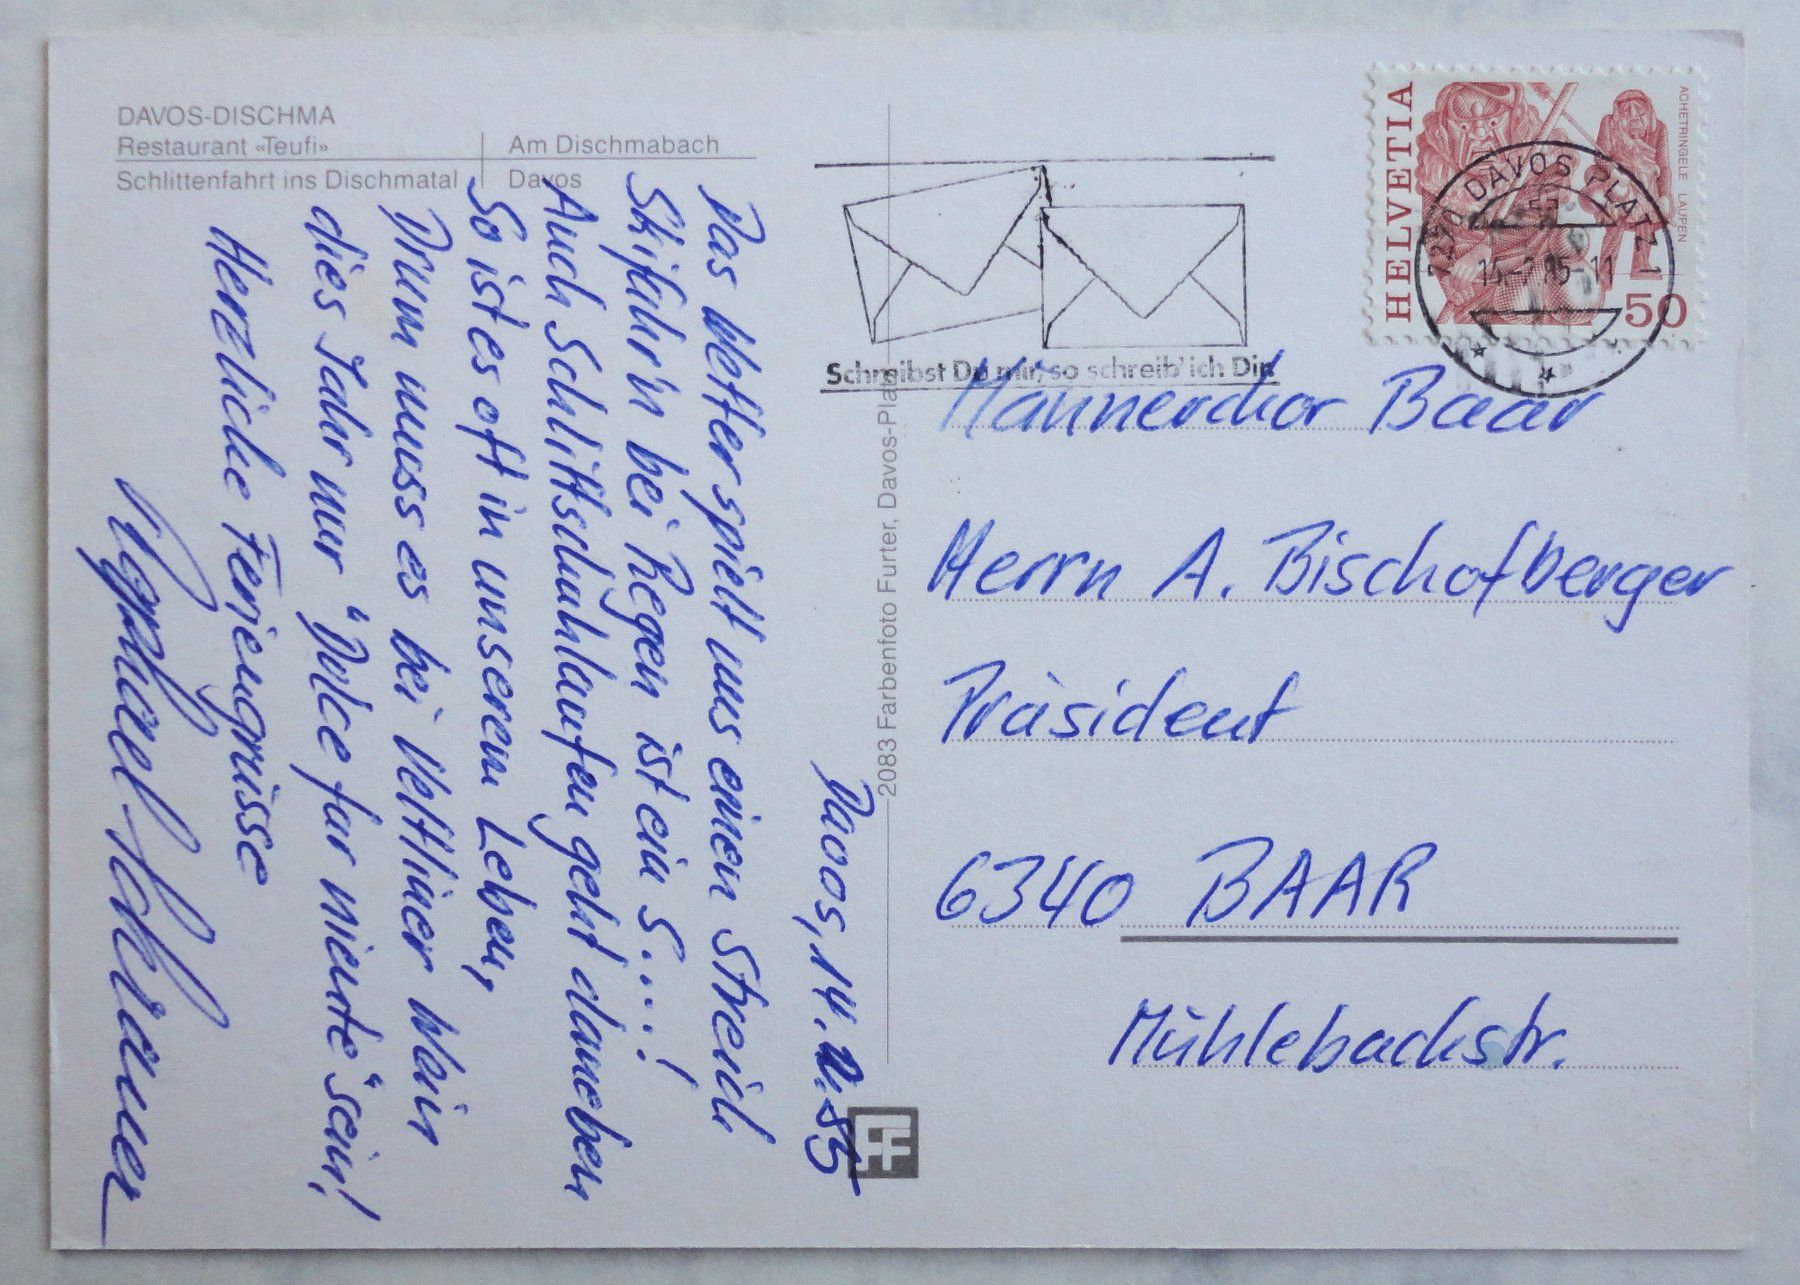 DAVOS-DISCHMA
Restaurant «Teufi»
Schlittenfahrt ins Dischmatal
Am Dischmabach
Davos
Davos, 14. 2. 85
Das Wetter spielt uns einen Streich
Skifahr'n bei Regen ist ein S....!
Auch Schlittschuhlaufen geht daneben
So ist es oft in unserem Leben,
Drum muss es bei Veltliner Wein
dies Jahr nur "Dolce far niente" sein!
Herzliche Feriengrüsse
2083 Farbenfoto Furter, Davos-Platz
FF
Schreibst Du mir, so schreib' ich Dir
HELVETIA
ACHETRINGELE LAUPEN
50
7270 DAVOS PLATZ 1
Männerchor Baar
Herrn A. Bischofberger
Präsident
6340 BAAR
Mühlebachstr.